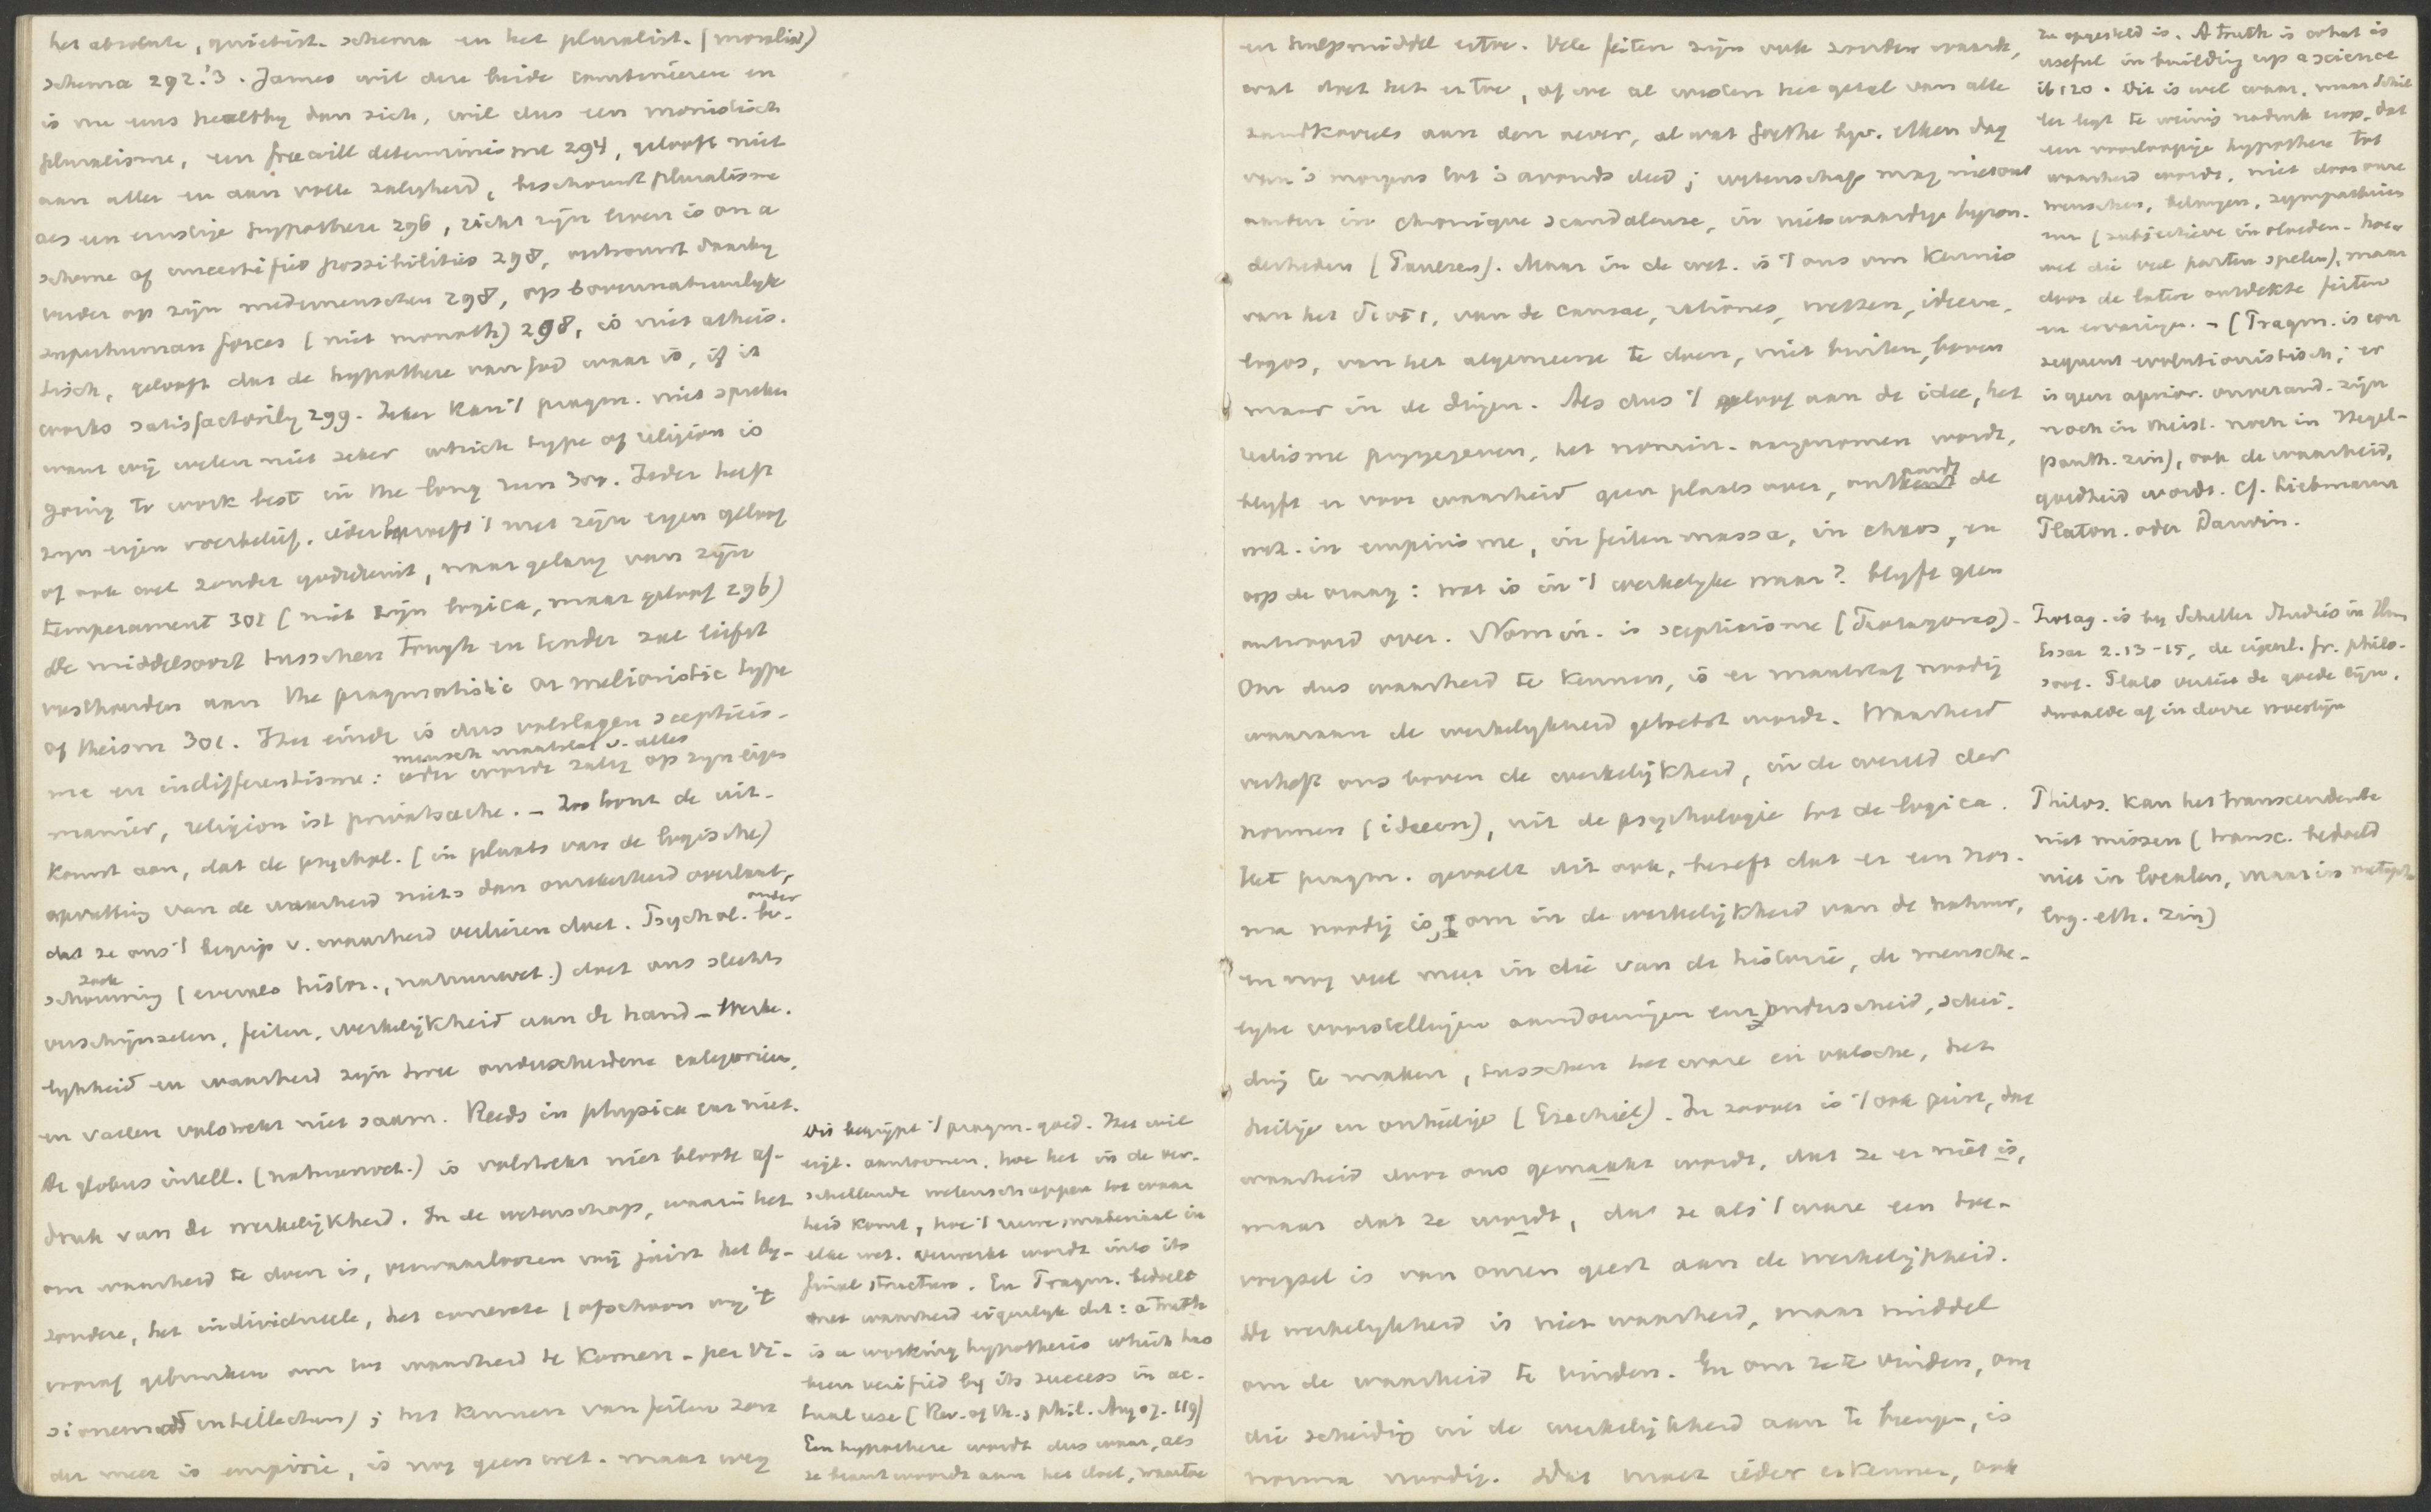 het absolute, quiëtist. schema en het pluralist. (moralist)
schema 292.'3. James wil deze beide combineeren en
is nu eens healthy dan sick, wil dus een monistisch
pluralisme, een freewill determinisme 294, gelooft niet
aan aller en aan volle zaligheid, beschouwt pluralisme
als een ernstige hypothese 296, zicht zijn leven is on a
scheme of uncertified possibilities 298, vertrouwt daarbij
verder op zijn medemenschen 298, op bovennatuurlijke
superhuman forces (niet monoth) 298, is niet atheis-
tisch, gelooft dat de hypothese van God waar is, if it
works satisfactorily 299. Zeker kan 't pragm. niet spreken
want wij weten niet zeker which type of religion is
going to work best in the long run 300. Ieder heeft
zijn eigen overbelief. ieder behoeft 't met zijn eigen geloof
of ook wel zonder godsdienst, naar gelang van zijn
temperament 301 (niet zijn logica, maar geloof 296)
De middelsoort tusschen tough en tender zal liefst
vasthouden aan the pragmatistic or melioristic type
of theism 301. Het einde is dus volslagen sceptics-
mensch maatstaf v. alles
me en indifferentisme: ieder worde zalig op zijn eigen
manier, religion ist privatsache. - Zoo toont de uit-
komst aan, dat de psychol. (in plaats van de logische)
opvatting van de waarheid niets dan onzekerheid overlaat,
dat ze ons 't begrip v. waarheid verliezen doet. Psychol. be-
schouwing (evenals histor., natuurwet.) doet ons slechts
verschijnselen, feiten, werkelijkheid aan de hand - Werke-
lijkheid en waarheid zijn twee onderscheidene categorieën,
en vallen volstrekt niet saam. Reeds in physica enz niet.
De globus intell. (natuurwet.) is volstrekt niet bloote af-
druk van de werkelijkheid. In de wetenschap, waarin het
om waarheid te doen is, verwaarloozen wij juist het bij-
zondere, het individueele, het concrete (ofschoon wij 't
vooraf gebruiken om tot waarheid te komen - per vi-
sionem ad intellectum); het kennen van feiten zon-
der meer is empirie, is nog geen wet. maar weg
Dit begrijpt 't pragm. goed. Het wil
eigl. aantoonen, hoe het in de ver-
schillende wetenschappen tot waar
heid komt, hoe 't ruwe materiaal in
elke wet. verwerkt wordt into its
final structure. En Pragm. bedoelt
met waarheid eigenlijk dit: a truth
is a working hypothesis which has
been verified by its success in ac-
tual use (Rev. of Th. & Phil. Aug 07. 119)
Een hypothese wordt dus waar, als
ze beantwoordt aan het doel, waartoe
en hulpmiddel ertoe. Vele feiten zijn ook zonder waarde,
wat doet het er toe, of we al weten het getal van alle
zandkorrels aan den oever, al wat Goethe bijv. elken dag
van 's morgens tot 's avonds deed; wetenschap mag niet ont
aarden in chronique scandaleuse, in nietswaardige bijzon-
derheden (Paulsen). Maar in de wet. is 't ons om kennis
van het διοτι, van de causae, rationes, wetten, ideeën,
logos, van het algemeene te doen, niet buiten, boven
maar in de dingen. Als dus 't geloof aan de idee, het
realisme prijsgegeven, het nomin. aangenomen wordt,
blijft er voor waarheid geen plaats over, ontaardt de
wet. in empirisme, in feitenmassa, in chaos, en
op de vraag: wat is in 't werkelijke waar? blijft geen
antwoord over. Nomin. is scepticisme (Protagoras).
Om dus waarheid te kennen, is er maatstaf noodig
waaraan de werkelijkheid getoetst wordt. Waarheid
verheft ons boven de werkelijkheid, in de wereld der
normen (ideeën), uit de psychologie tot de logica.
Het pragm. gevoelt dit ook, beseft dat er een nor-
ma noodig is, om in de werkelijkheid van de natuur,
en nog veel meer in die van de historie, de mensche-
lijke voorstellingen aandoeningen enz onderscheid, schei-
ding te maken, tusschen het ware en valsche, het
heilige en onheilige (Ezechiel). In zoover is 't ook juist, dat
waarheid door ons gemaakt wordt, dat ze er niet is,
maar dat ze wordt, dat ze als 't ware een toe-
voegsel is van onzen geest aan de werkelijkheid.
De werkelijkheid is niet waarheid, maar middel
om de waarheid te vinden. En om ze te vinden, om
die scheiding in de werkelijkheid aan te brengen, is
norma noodig. Dat moet ieder erkennen, ook
ze opgesteld is. A truth is what is
useful in building up a science
ib 120. Dit is wel waar, maar Schil
ler legt te weinig nadruk erop, dat
een voorloopige hypothese tot
waarheid wordt, niet door onze
wenschen, belangen, sympathieën
enz (subjectieve invloeden - hoe-
wel die veel parten spelen), maar
door de later ontdekte feiten
en ervaringen. - (Pragm. is con
sequent evolutionistisch; er
is geen aprior. onverand. zijn
noch in theist. noch in Hegel-
panth. zin), ook de waarheid,
goedheid wordt. Cf. Liebmann
Platon. oder Darwin.
Protag. is bij Schiller Studies in Hum
Essay 2.13-15, de eigenl. gr. philo-
soof. Plato verliet de goede lijn,
dwaalde af in dorre woestijn
Philos. kan het transcendente
niet missen (transc. bedoeld
niet in localen, maar in metaph.
log. eth. zin)